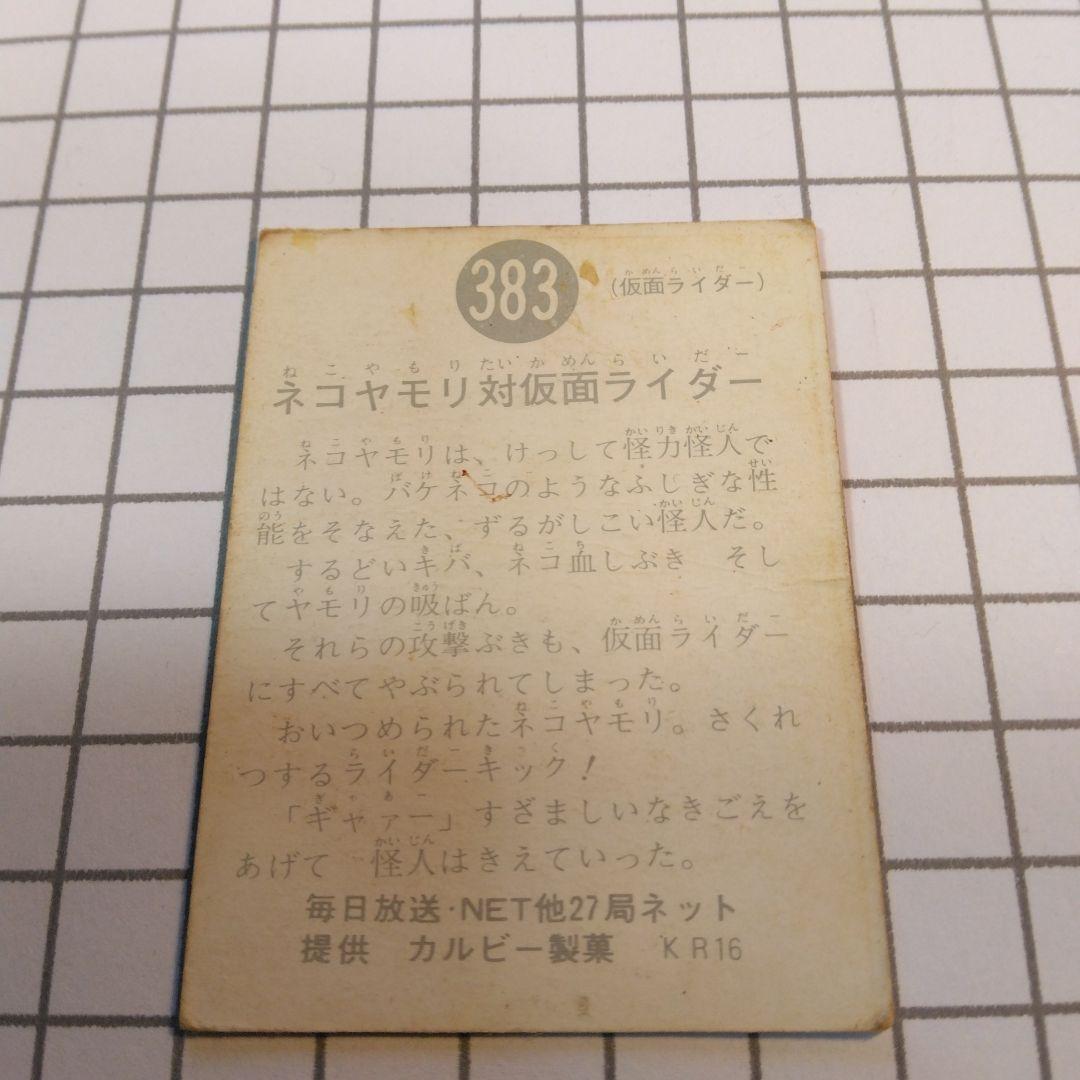 383
(仮面ライダー)
ネコヤモリ対仮面ライダー
ネコヤモリは、けっして怪力怪人で
はない。バケネコのようなふしぎな性
能をそなえた、ずるがしこい怪人だ。
するどいキバ、ネコ血しぶき　そし
てヤモリの吸ばん。
それらの攻撃ぶきも、仮面ライダー
にすべてやぶられてしまった。
おいつめられたネコヤモリ。さくれ
つするライダーキック！
「ギャァー」すざましいなきごえを
あげて　怪人はきえていった。
毎日放送・NET他27局ネット
提供　カルビー製菓　KR16